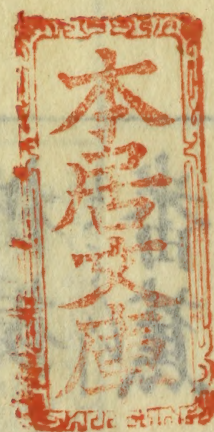 本居文庫